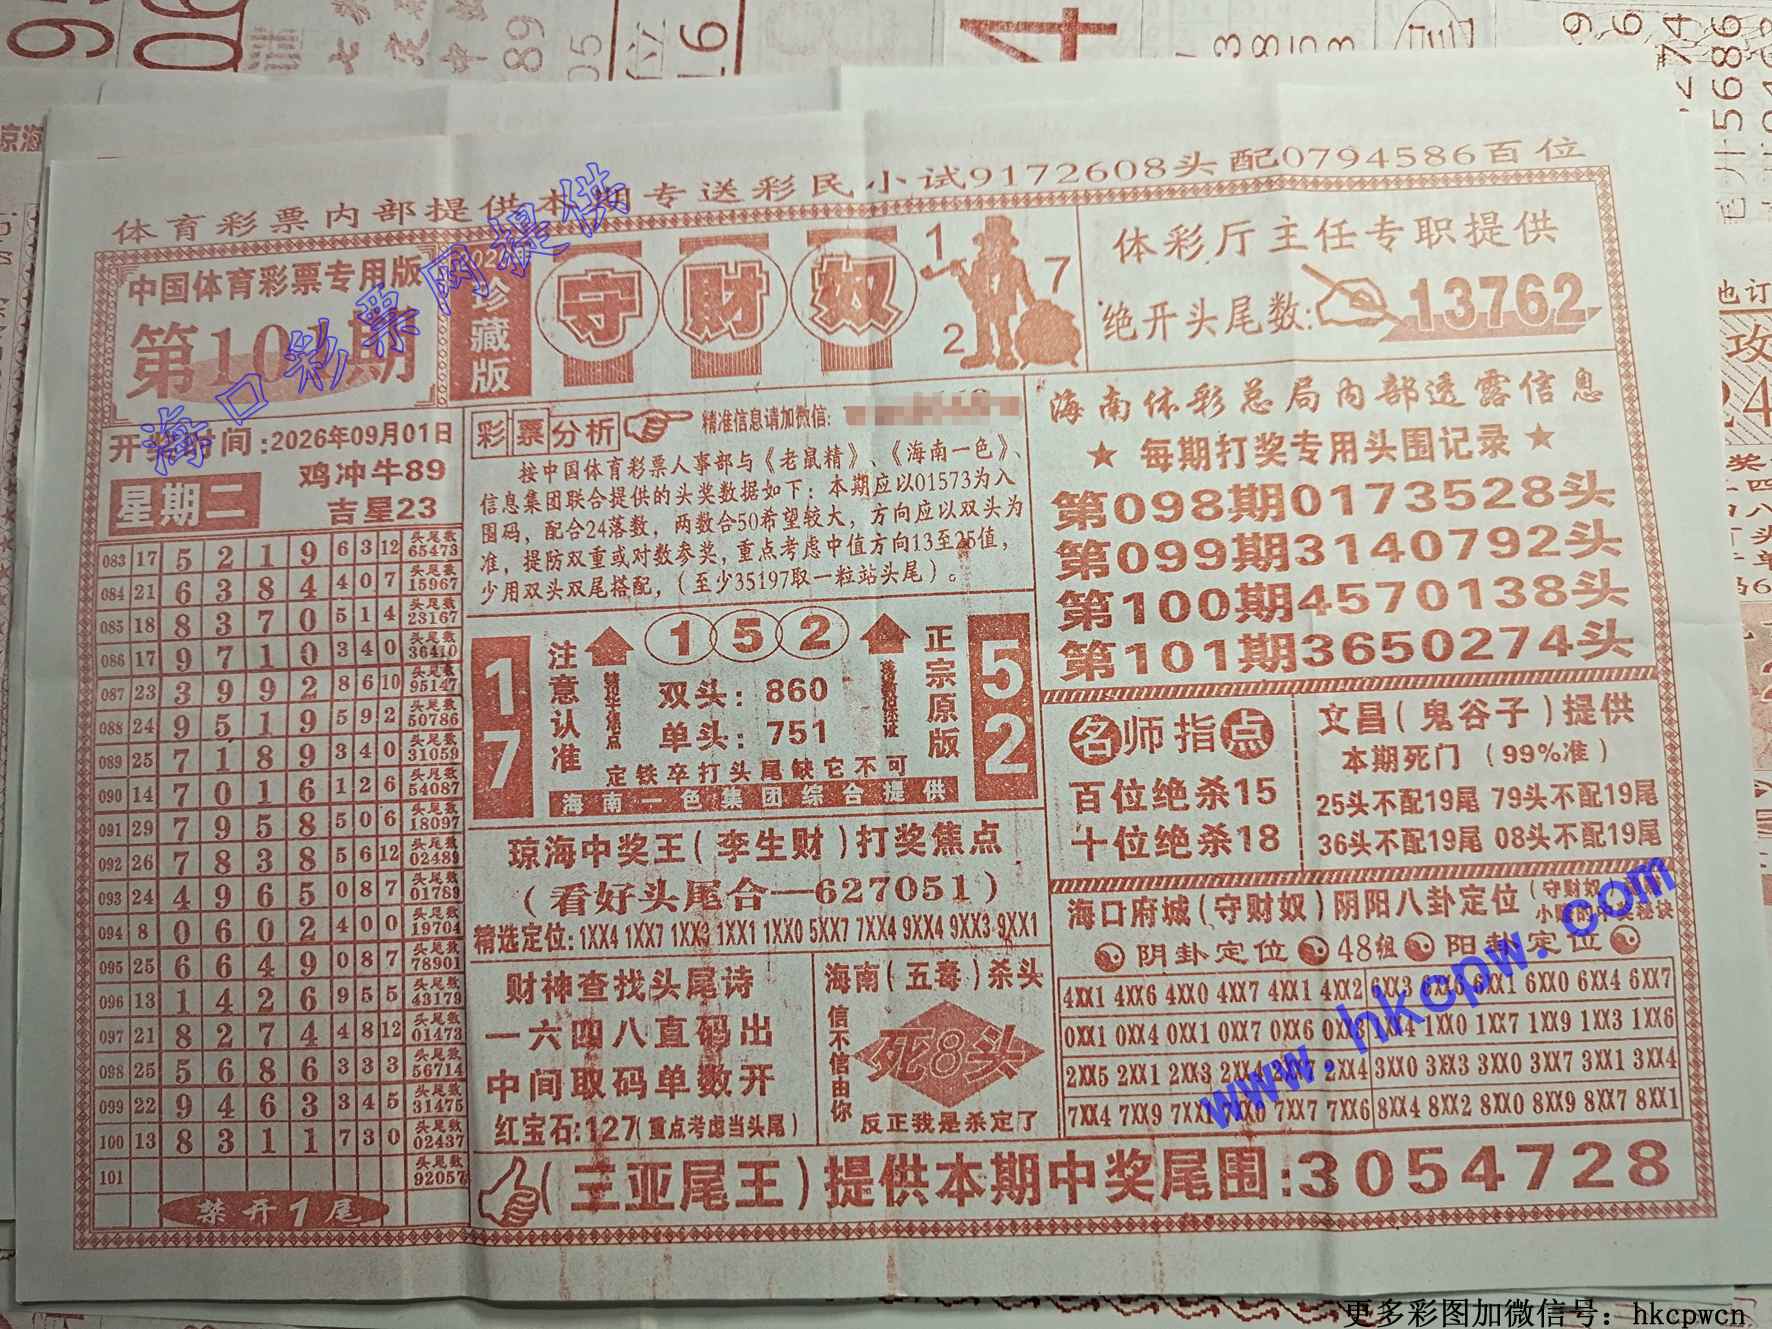 体育彩票内部提供本期专送彩民小试9172608头配0794586百位
中国体育彩票专用版
第101期
珍藏版
守财奴
1
7
2
体彩厅主任专职提供
绝开头尾数:13762
开奖时间:2026年09月01日
星期二
鸡冲牛89
吉星23
083 17 5 2 1 9 6 3 12 头尾数 65473
084 21 6 3 8 4 4 0 7 头尾数 15967
085 18 8 3 7 0 5 1 4 头尾数 23167
086 17 9 7 1 0 3 4 0 头尾数 36410
087 23 3 9 9 2 8 6 10 头尾数 95147
088 24 9 5 1 9 5 9 2 头尾数 50786
089 25 7 1 8 9 3 4 0 头尾数 31059
090 14 7 0 1 6 1 2 6 头尾数 54087
091 29 7 9 5 8 5 0 6 头尾数 18097
092 26 7 8 3 8 5 6 12 头尾数 02489
093 24 4 9 6 5 0 8 7 头尾数 01789
094 8 0 6 0 2 4 0 0 头尾数 19704
095 25 6 6 4 9 0 8 7 头尾数 78901
096 13 1 4 2 6 9 5 5 头尾数 43179
097 21 8 2 7 4 4 8 12 头尾数 01473
098 25 5 6 8 6 3 3 3 头尾数 56714
099 22 9 4 6 3 3 4 5 头尾数 31475
100 13 8 3 1 1 7 3 0 头尾数 02437
101 头尾数 92057
禁开1尾
彩票分析
精准信息请加微信:
按中国体育彩票人事部与《老鼠精》、《海南一色》、
信息集团联合提供的头奖数据如下：本期应以01573为入
围码，配合24落数，两数合50希望较大，方向应以双头为
准，提防双重或对数参奖，重点考虑中值方向13至25值，
少用双头双尾搭配，（至少35197取一粒站头尾）。
17
注意认准
1 5 2
双头：860
单头：751
正宗原版
52
定铁卒打头尾缺它不可
海南一色集团综合提供
琼海中奖王(李生财)打奖焦点
(看好头尾合—627051)
精选定位:1XX4 1XX7 1XX3 1XX1 1XX0 5XX7 7XX4 9XX4 9XX3 9XX1
财神查找头尾诗
一六四八直码出
中间取码单数开
红宝石:127(重点考虑当头尾)
海南(五毒)杀头
信不信由你
死8头
反正我是杀定了
海南体彩总局内部透露信息
★每期打奖专用头围记录★
第098期0173528头
第099期3140792头
第100期4570138头
第101期3650274头
名师指点
百位绝杀15
十位绝杀18
文昌(鬼谷子)提供
本期死门（99%准）
25头不配19尾 79头不配19尾
36头不配19尾 08头不配19尾
海口府城(守财奴)阴阳八卦定位
阴卦定位 48组 阳卦定位
4XX1 4XX6 4XX0 4XX7 4XX1 4XX2 6XX3 6XX5 6XX1 6XX0 6XX4 6XX7
0XX1 0XX4 0XX1 0XX7 0XX6 0XX3 1XX4 1XX0 1XX7 1XX9 1XX3 1XX6
2XX5 2XX1 2XX3 2XX4 2XX7 2XX4 3XX0 3XX3 3XX0 3XX7 3XX1 3XX4
7XX4 7XX9 7XX1 7XX0 7XX7 7XX6 8XX4 8XX2 8XX0 8XX9 8XX7 8XX1
(三亚尾王)提供本期中奖尾围:3054728
海口彩票网提供
www.hkcpw.com
更多彩图加微信号：hkcpwcn